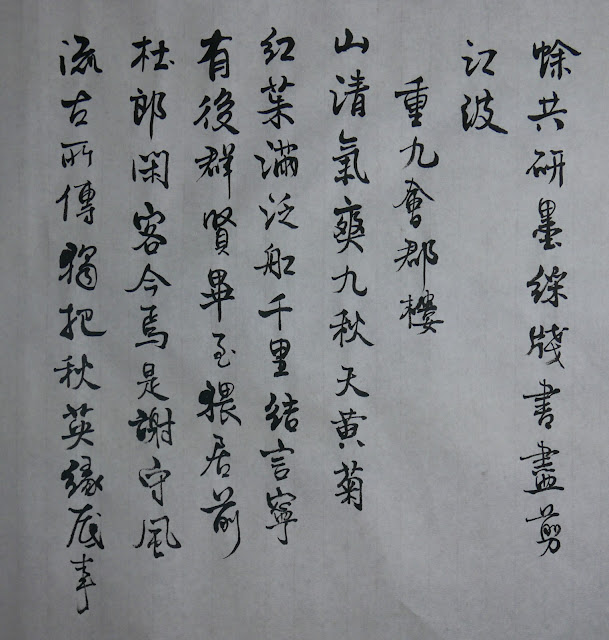 蜍共研墨綵牋書盡剪
江波
重九會郡樓
山清氣爽九秋天黃菊
紅茱滿泛船千里結言寧
有後群賢畢至猥居前
杜郎閑客今焉是謝守風
流古所傳獨把秋英緣底事